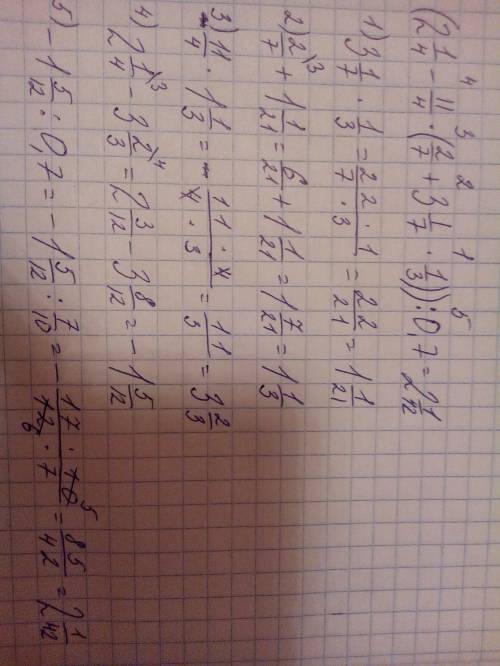 (2 1/4 - 11/4 · (2/7 + 3 1/7 · 1/3)) : 0,7 = 2 1/42
1) 3 1/7 · 1/3 = 22·1/7·3 = 22/21 = 1 1/21
2) 2/7 + 1 1/21 = 6/21 + 1 1/21 = 1 7/21 = 1 1/3
3) 11/4 · 1 1/3 = 11·4/4·3 = 11/3 = 3 2/3
4) 2 1/4 - 3 2/3 = 2 3/12 - 3 8/12 = - 1 5/12
5) - 1 5/12 : 0,7 = - 1 5/12 : 7/10 = - 17·10/12·7 = 85/42 = 2 1/42